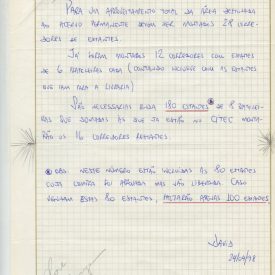 PARA UM APROVEITAMENTO TOTAL DA ÁREA DESTINADA
AO ACERVO PERMANENTE DEVEM SER MONTADOS 28 CORRE-
DORES DE ESTANTES.
JÁ FORAM MONTADOS 12 CORREDORES COM ESTANTES
DE 6 PRATELEIRAS CADA (CONTANDO INCLUSIVE COM AS ESTANTES
QUE IAM PARA A LIVRARIA)
SÃO NECESSÁRIAS AINDA 180 ESTANTES DE 8 PRATELEI-
RAS QUE SOMADAS ÀS QUE JÁ ESTÃO NO GITEC MONTA-
RÃO OS 16 CORREDORES RESTANTES.
OBS: NESTE NÚMERO ESTÃO INCLUÍDAS AS 80 ESTANTES
CUJA COMPRA FOI APROVADA MAS NÃO LIBERADA. CASO
VENHAM ESSAS 80 ESTANTES, FALTARÃO APENAS 100 ESTANTES
DAVID
29/04/98